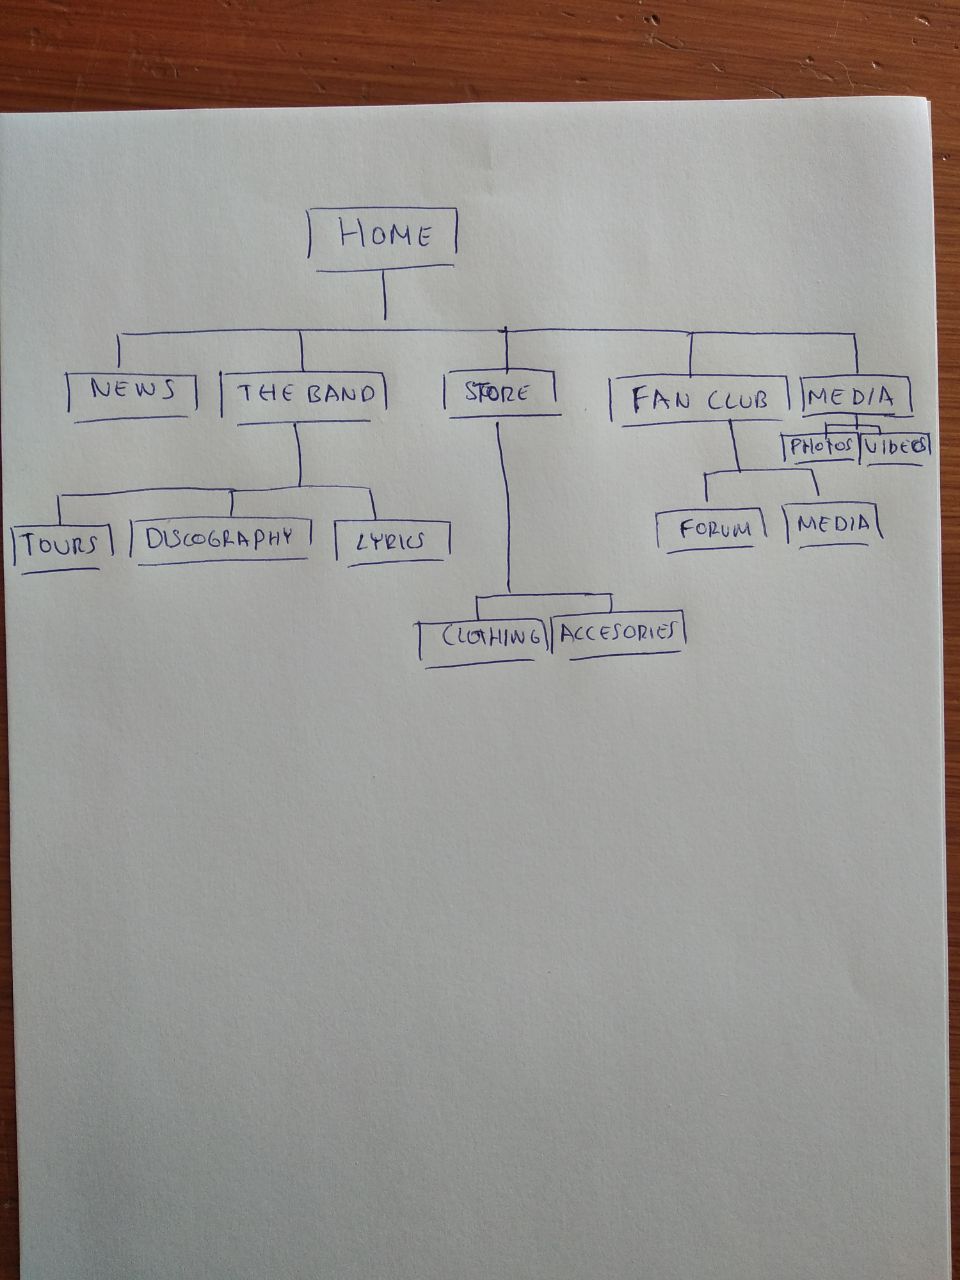 HOME
NEWS THE BAND STORE FAN CLUB MEDIA
PHOTOS VIDEOS
TOURS DISCOGRAPHY LYRICS FORUM MEDIA
CLOTHING ACCESORIES